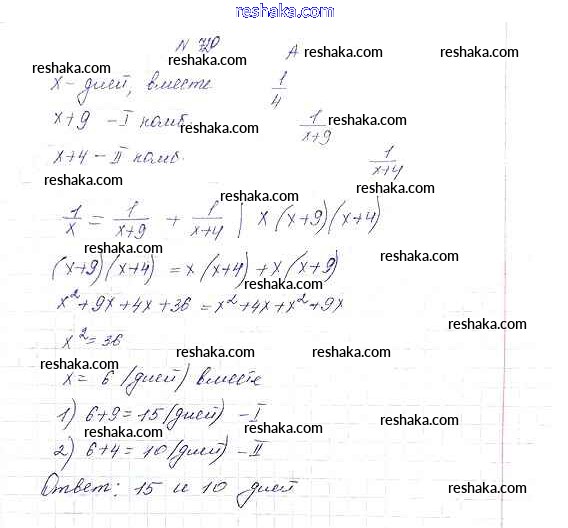 reshaka.com
№ 720 A
reshaka.com reshaka.com
x - дней, вместе 1/4
reshaka.com
x+9 - I комб. 1/(x+9)
reshaka.com
x+4 - II комб. 1/(x+4)
reshaka.com reshaka.com
reshaka.com
1/x = 1/(x+9) + 1/(x+4) | x(x+9)(x+4)
reshaka.com reshaka.com
(x+9)(x+4) = x(x+4)+x(x+9)
reshaka.com
x²+9x+4x+36 = x²+4x+x²+9x
reshaka.com
x²=36
reshaka.com reshaka.com reshaka.com
x= 6 (дней) вместе
reshaka.com
1) 6+9=15(дней) -I
reshaka.com reshaka.com
2) 6+4= 10(дней) -II
reshaka.com reshaka.com
Ответ: 15 и 10 дней
reshaka.com